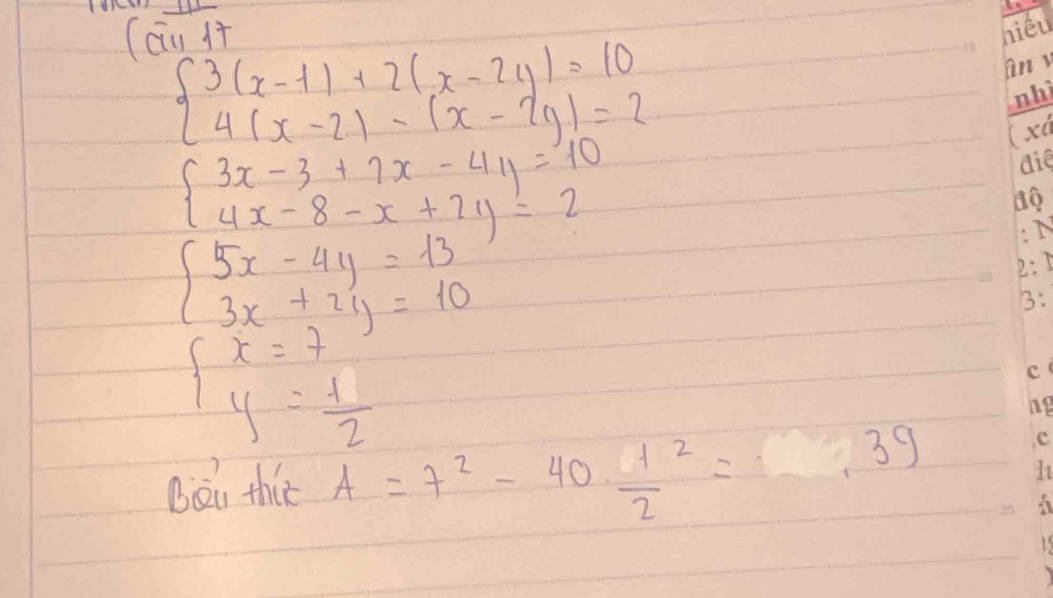 Câu 17
{ 3(x-1) + 2(x-2y) = 10
4(x-2) - (x-2y) = 2
{ 3x - 3 + 2x - 4y = 10
4x - 8 - x + 2y = 2
{ 5x - 4y = 13
3x + 2y = 10
{ x = 7
y = 1/2
Biểu thức A = 7² - 40. 1²/2 = 39
hiểu
ân v
nhi
(xá
điề
độ
: N
2: N
3:
c
ng
.c